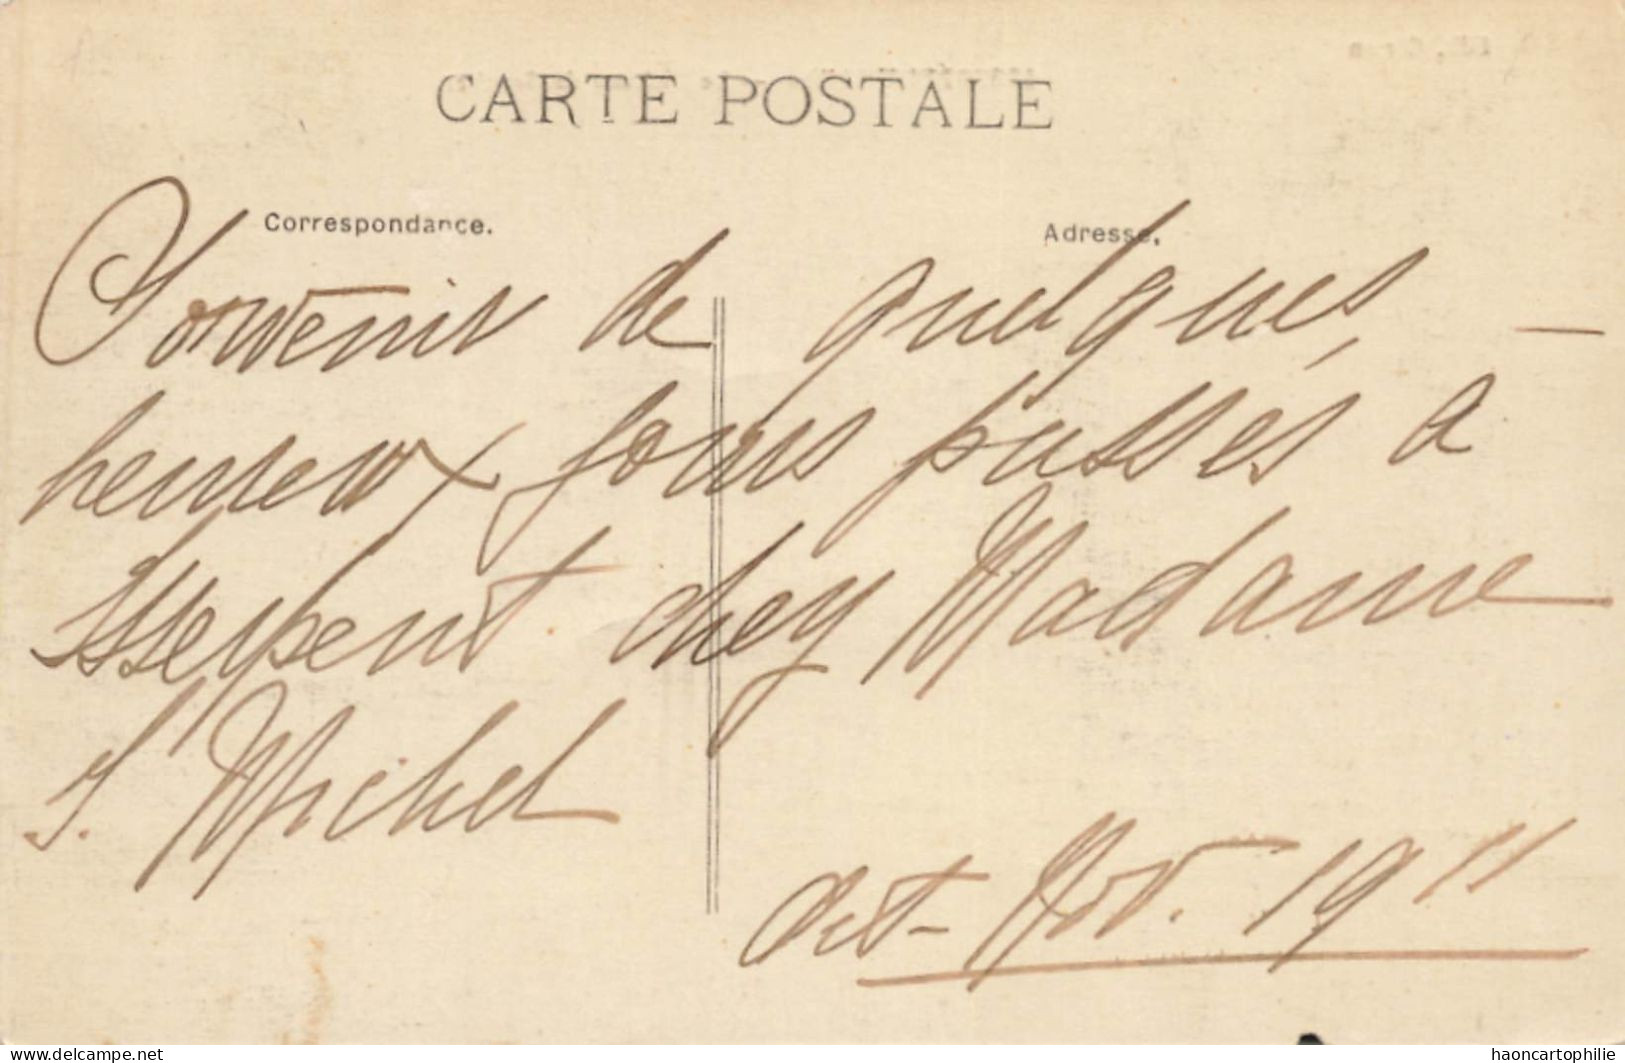 CARTE POSTALE
Correspondance.
Adresse.
Souvenir de quelques —
heureux jours passés a
Issepent chez Madame
S. Michel
Oct - Nov. 1911
www.delcampe.net
haoncartophilie